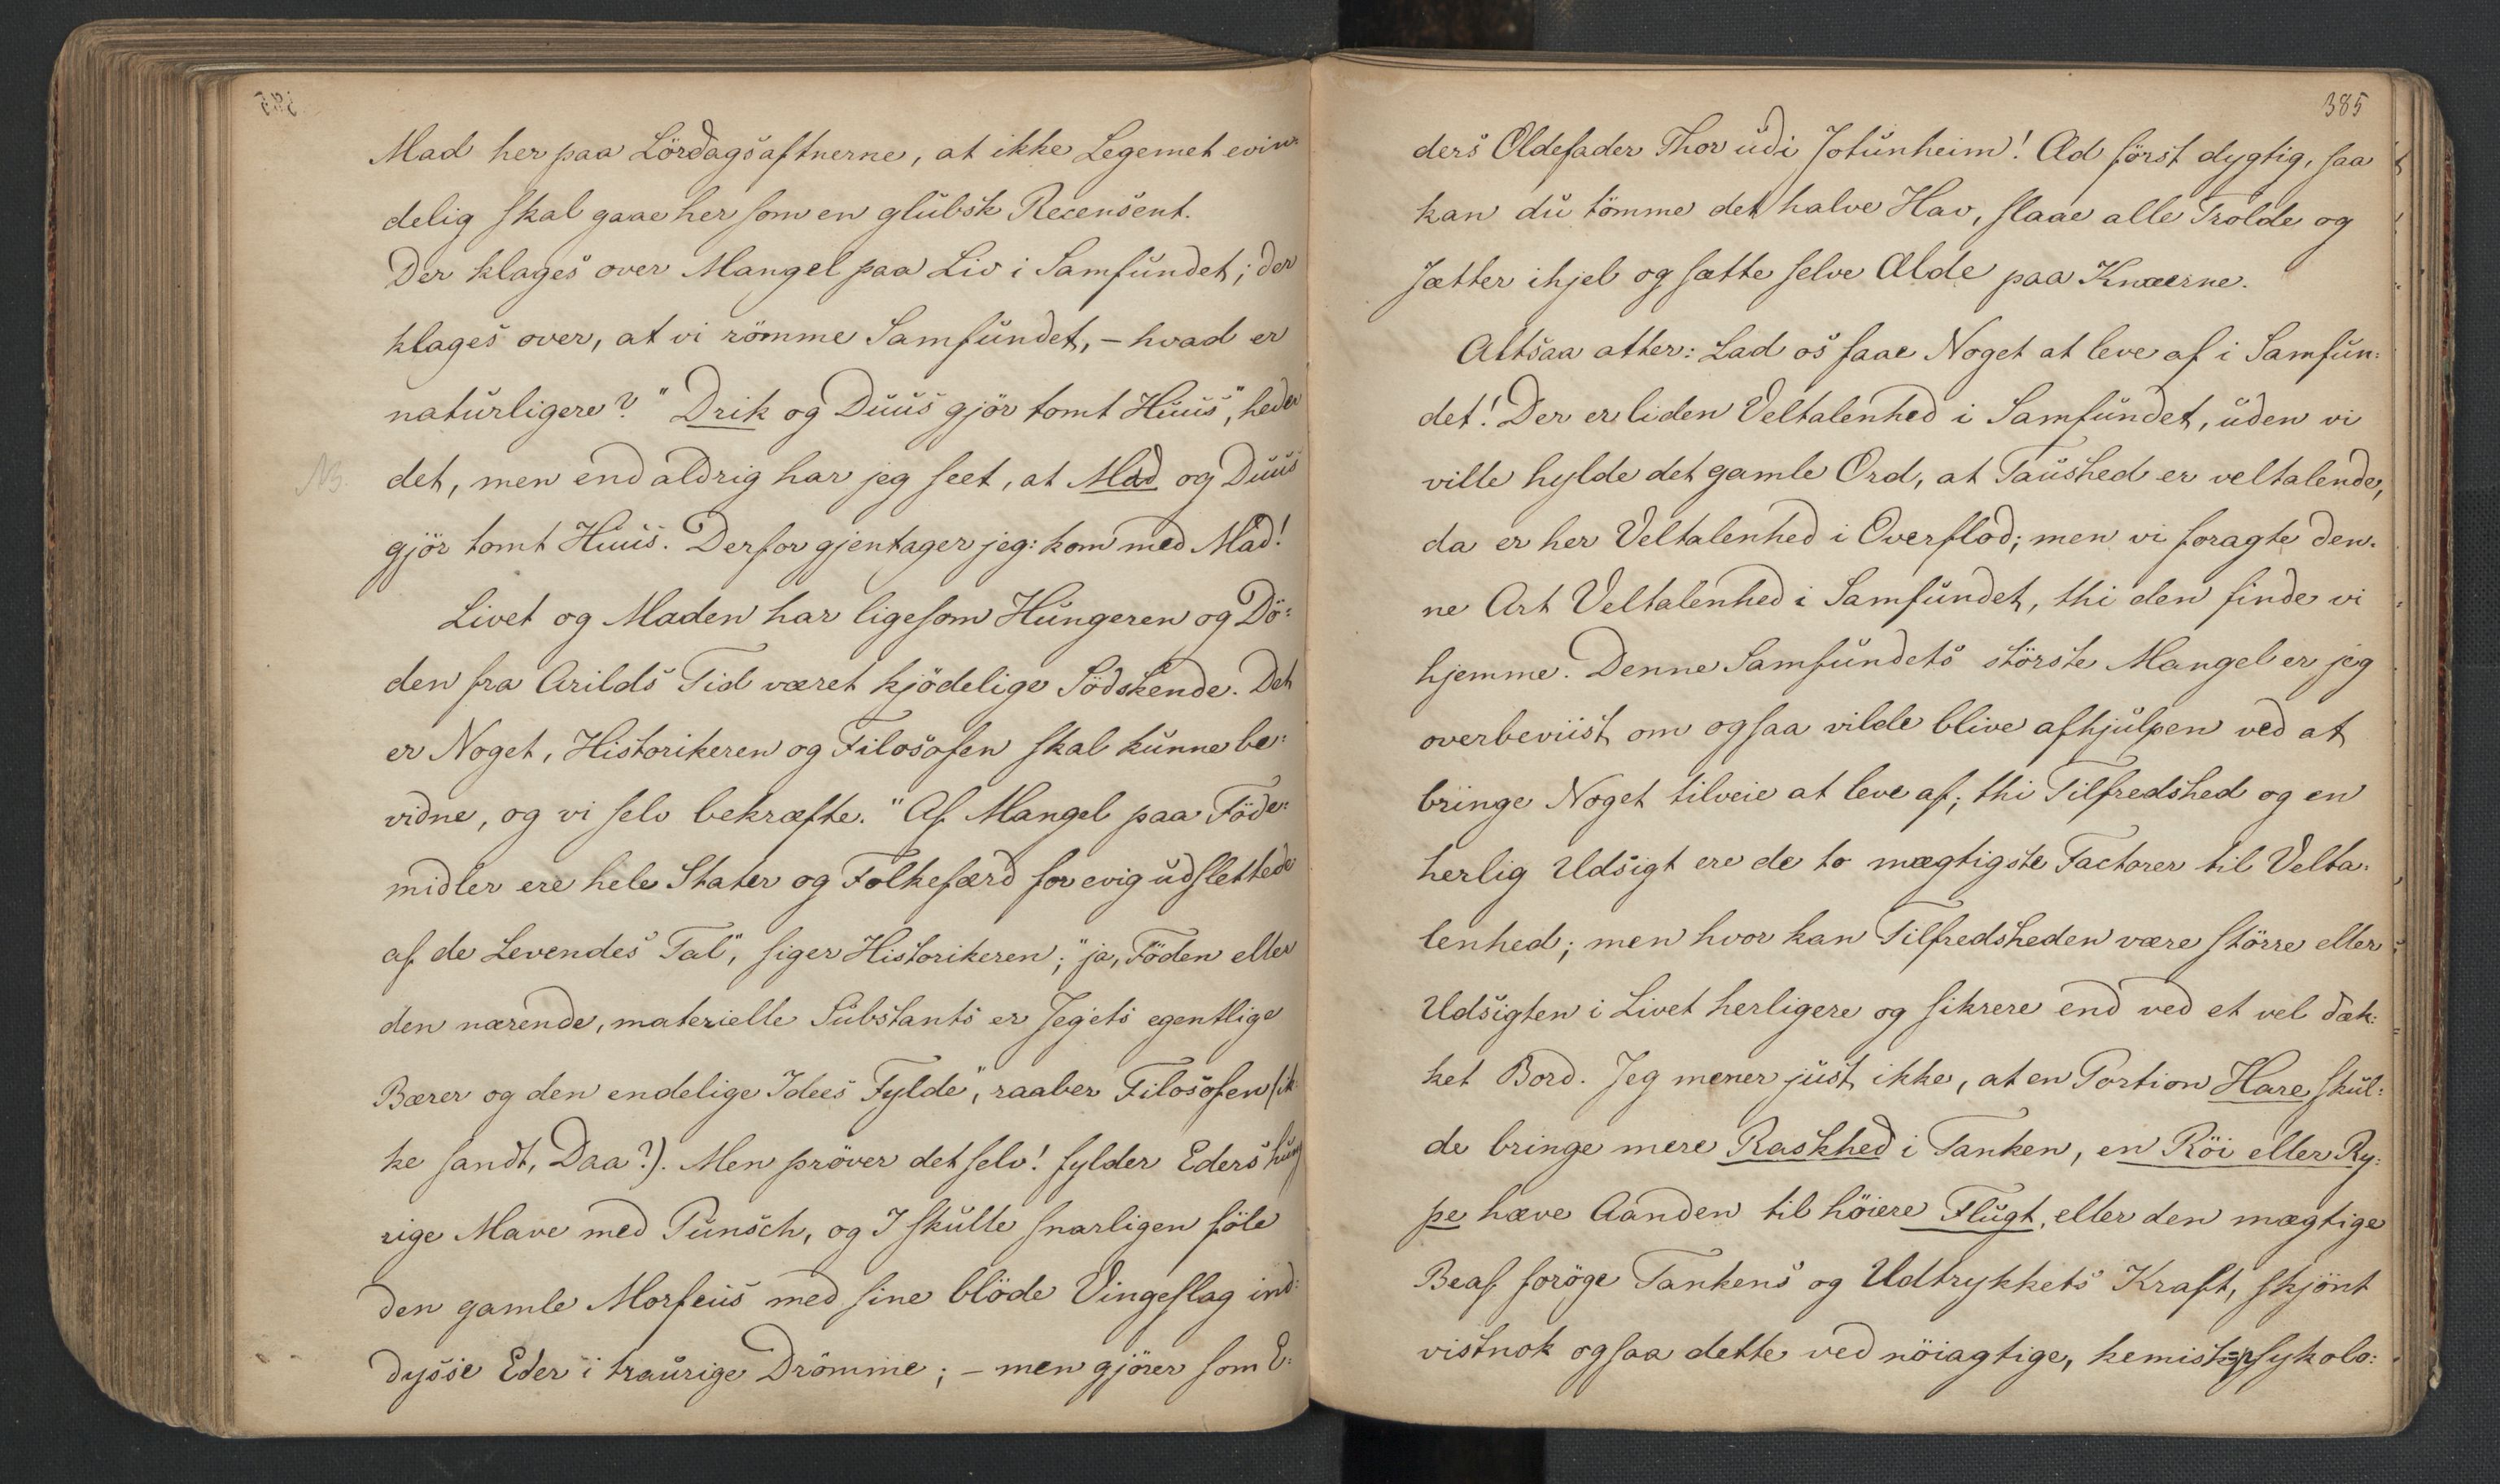 Mad her paa Lördagsaftnerne, at ikke Legemet evin-
delig skal gaae her som en glubsk Recensent.
Der klages over Mangel paa Liv i Samfundet; der
klages over, at vi römme Samfundet, – hvad er
naturligere? "Drik og Duus gjör tomt Huus", heder
NB. det, men end aldrig har jeg seet, at Mad og Duus
gjör tomt Huus. Derfor gjentager jeg: kom med Mad!
Livet og Maden har ligesom Hungeren og Dö=
den fra Arilds Tid været kjödelige Södskende. Det
er Noget, Historikeren og Filosofen skal kunne be=
vidne, og vi selv bekræfte. "Af Mangel paa Föde=
midler ere hele Stater og Folkefærd for evig udslettede
af de Levendes Tal", siger Historikeren; "ja, Föden eller
den nærende, materielle Substants er Jegets egentlige
Bærer og den endelige Idees Fylde", raaber Filosofen (ik=
ke sandt, Daa?). Men pröver det selv! fylder Eders hung
rige Mave med Punsch, og I skulle snarligen föle
den gamle Morfeus med sine blöde Vingeslag ind=
dysse Eder i traurige Drömme; – men gjörer som E=
385
ders Oldefader Thor udi Jotunheim! Æd först dygtig, saa
kan du tömme det halve Hav, slaae alle Trolde og
Jætter ihjel og sætte selve Ælde paa Knæerne.
Altsaa atter: Lad os faae Noget at leve af i Samfun=
det! Der er liden Veltalenhed i Samfundet, uden vi
ville hylde det gamle Ord, at Taushed er veltalende,
da er her Veltalenhed i Overflod; men vi foragte den-
ne Art Veltalenhed i Samfundet, thi den finde vi
hjemme. Denne Samfundets störste Mangel er jeg
overbeviist om ogsaa vilde blive afhjulpen ved at
bringe Noget tilveie at leve af; thi Tilfredshed og en
herlig Udsigt ere de to mægtigste Factorer til Velta=
lenhed; men hvor kan Tilfredsheden være större eller
Udsigten i Livet herligere og sikrere end ved et vel dæk=
ket Bord. Jeg mener just ikke, at en Portion Hare skul=
de bringe mere Raskhed i Tanken, en Röi eller Ry=
pe hæve Aanden til höiere Flugt, eller den mægtige
Beaf foröge Tankens og Udtrykkets Kraft, skjönt
vistnok ogsaa dette ved nöiagtige, kemisk=psykolo=